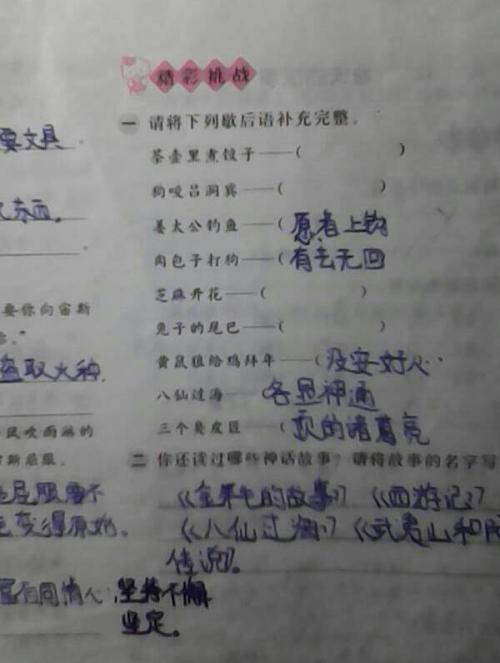 精彩挑战
一 请将下列歇后语补充完整。
茶壶里煮饺子——( )
狗咬吕洞宾——( )
姜太公钓鱼——( 愿者上钩
肉包子打狗——( 有去无回
芝麻开花——( )
兔子的尾巴——( )
黄鼠狼给鸡拜年——( 没安好心
八仙过海—— 各显神通
三个臭皮匠——( 的诸葛亮
二 你还读过哪些神话故事？请将故事的名字写
的故事》《西游记》
《八仙过海》《武夷山和阿
传说》。
文具
东西。
要你向宙斯
盗取火种
风吹雨淋的
宙斯屈服。
屈服
变得原始。
同情心，坚持不懈
坚定。